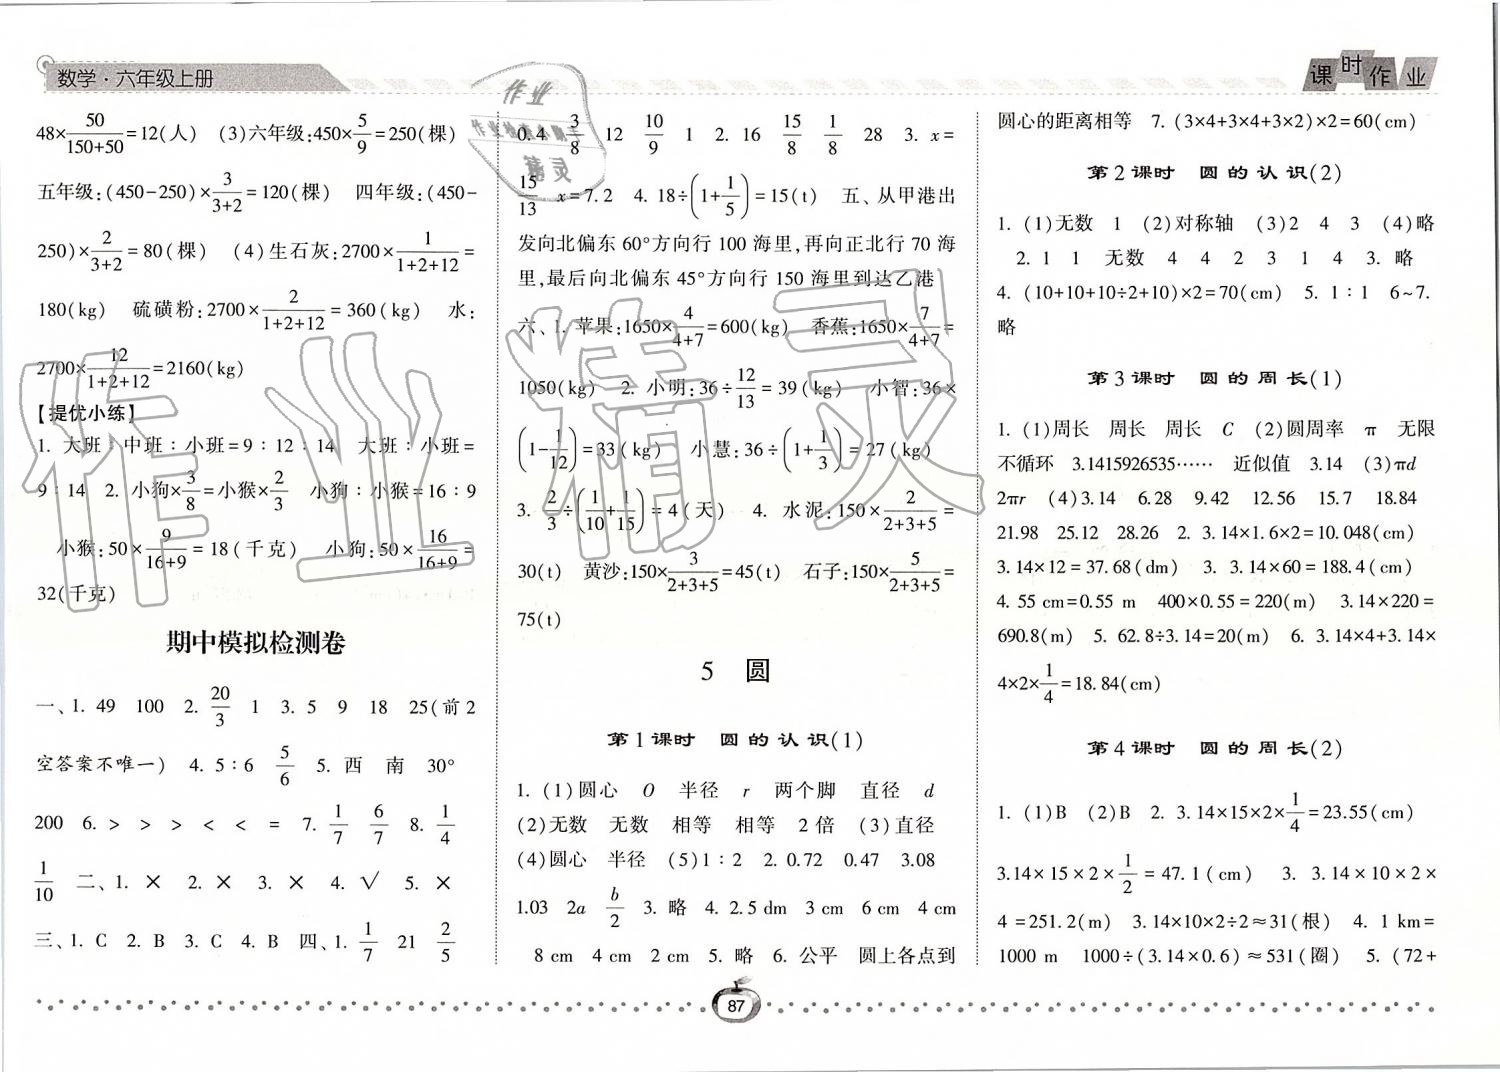 数学·六年级上册
课时作业
48×50/(150+50)=12(人) (3)六年级:450×5/9=250(棵)
五年级:(450-250)×3/(3+2)=120(棵) 四年级:(450-
250)×2/(3+2)=80(棵) (4)生石灰:2700×1/(1+2+12)=
180(kg) 硫磺粉:2700×2/(1+2+12)=360(kg) 水:
2700×12/(1+2+12)=2160(kg)
【提优小练】
1. 大班∶中班∶小班=9∶12∶14 大班∶小班=
9∶14 2. 小狗×3/8=小猴×2/3 小狗∶小猴=16∶9
小猴:50×9/(16+9)=18(千克) 小狗:50×16/(16+9)=
32(千克)
期中模拟检测卷
一、1. 49 100 2. 20/3 1 3. 5 9 18 25(前2
空答案不唯一) 4. 5∶6 5/6 5. 西 南 30°
200 6. > > > < < = 7. 1/7 6/7 8. 1/4
1/10 二、1. × 2. × 3. × 4. √ 5. ×
三、1. C 2. B 3. C 4. B 四、1. 1/7 21 2/5
0.4 3/8 12 10/9 1 2. 16 15/8 1/8 28 3. x=
15/13 x=7.2 4. 18÷(1+1/5)=15(t) 五、从甲港出
发向北偏东60°方向行100海里,再向正北行70海
里,最后向北偏东45°方向行150海里到达乙港
六、1. 苹果:1650×4/(4+7)=600(kg) 香蕉:1650×7/(4+7)=
1050(kg) 2. 小明:36÷12/13=39(kg) 小智:36×
(1-1/12)=33(kg) 小慧:36÷(1+1/3)=27(kg)
3. 2/3÷(1/10+1/15)=4(天) 4. 水泥:150×2/(2+3+5)=
30(t) 黄沙:150×3/(2+3+5)=45(t) 石子:150×5/(2+3+5)=
75(t)
5 圆
第1课时 圆的认识(1)
1. (1)圆心 O 半径 r 两个脚 直径 d
(2)无数 无数 相等 相等 2倍 (3)直径
(4)圆心 半径 (5)1∶2 2. 0.72 0.47 3.08
1.03 2a b/2 3. 略 4. 2.5 dm 3 cm 6 cm 4 cm
8 cm 4 cm 2 cm 5. 略 6. 公平 圆上各点到
圆心的距离相等 7. (3×4+3×4+3×2)×2=60(cm)
第2课时 圆的认识(2)
1. (1)无数 1 (2)对称轴 (3)2 4 3 (4)略
2. 1 1 无数 4 4 2 3 1 4 3. 略
4. (10+10+10÷2+10)×2=70(cm) 5. 1∶1 6~7.
略
第3课时 圆的周长(1)
1. (1)周长 周长 周长 C (2)圆周率 π 无限
不循环 3.1415926535…… 近似值 3.14 (3)πd
2πr (4)3.14 6.28 9.42 12.56 15.7 18.84
21.98 25.12 28.26 2. 3.14×1.6×2=10.048(cm)
3.14×12=37.68(dm) 3. 3.14×60=188.4(cm)
4. 55 cm=0.55 m 400×0.55=220(m) 3.14×220=
690.8(m) 5. 62.8÷3.14=20(m) 6. 3.14×4+3.14×
4×2×1/4=18.84(cm)
第4课时 圆的周长(2)
1. (1)B (2)B 2. 3.14×15×2×1/4=23.55(cm)
3.14×15×2×1/2=47.1(cm) 3. 3.14×10×2×
4=251.2(m) 3.14×10×2÷2≈31(根) 4. 1 km=
1000 m 1000÷(3.14×0.6)≈531(圈) 5. (72+
87
作业精灵